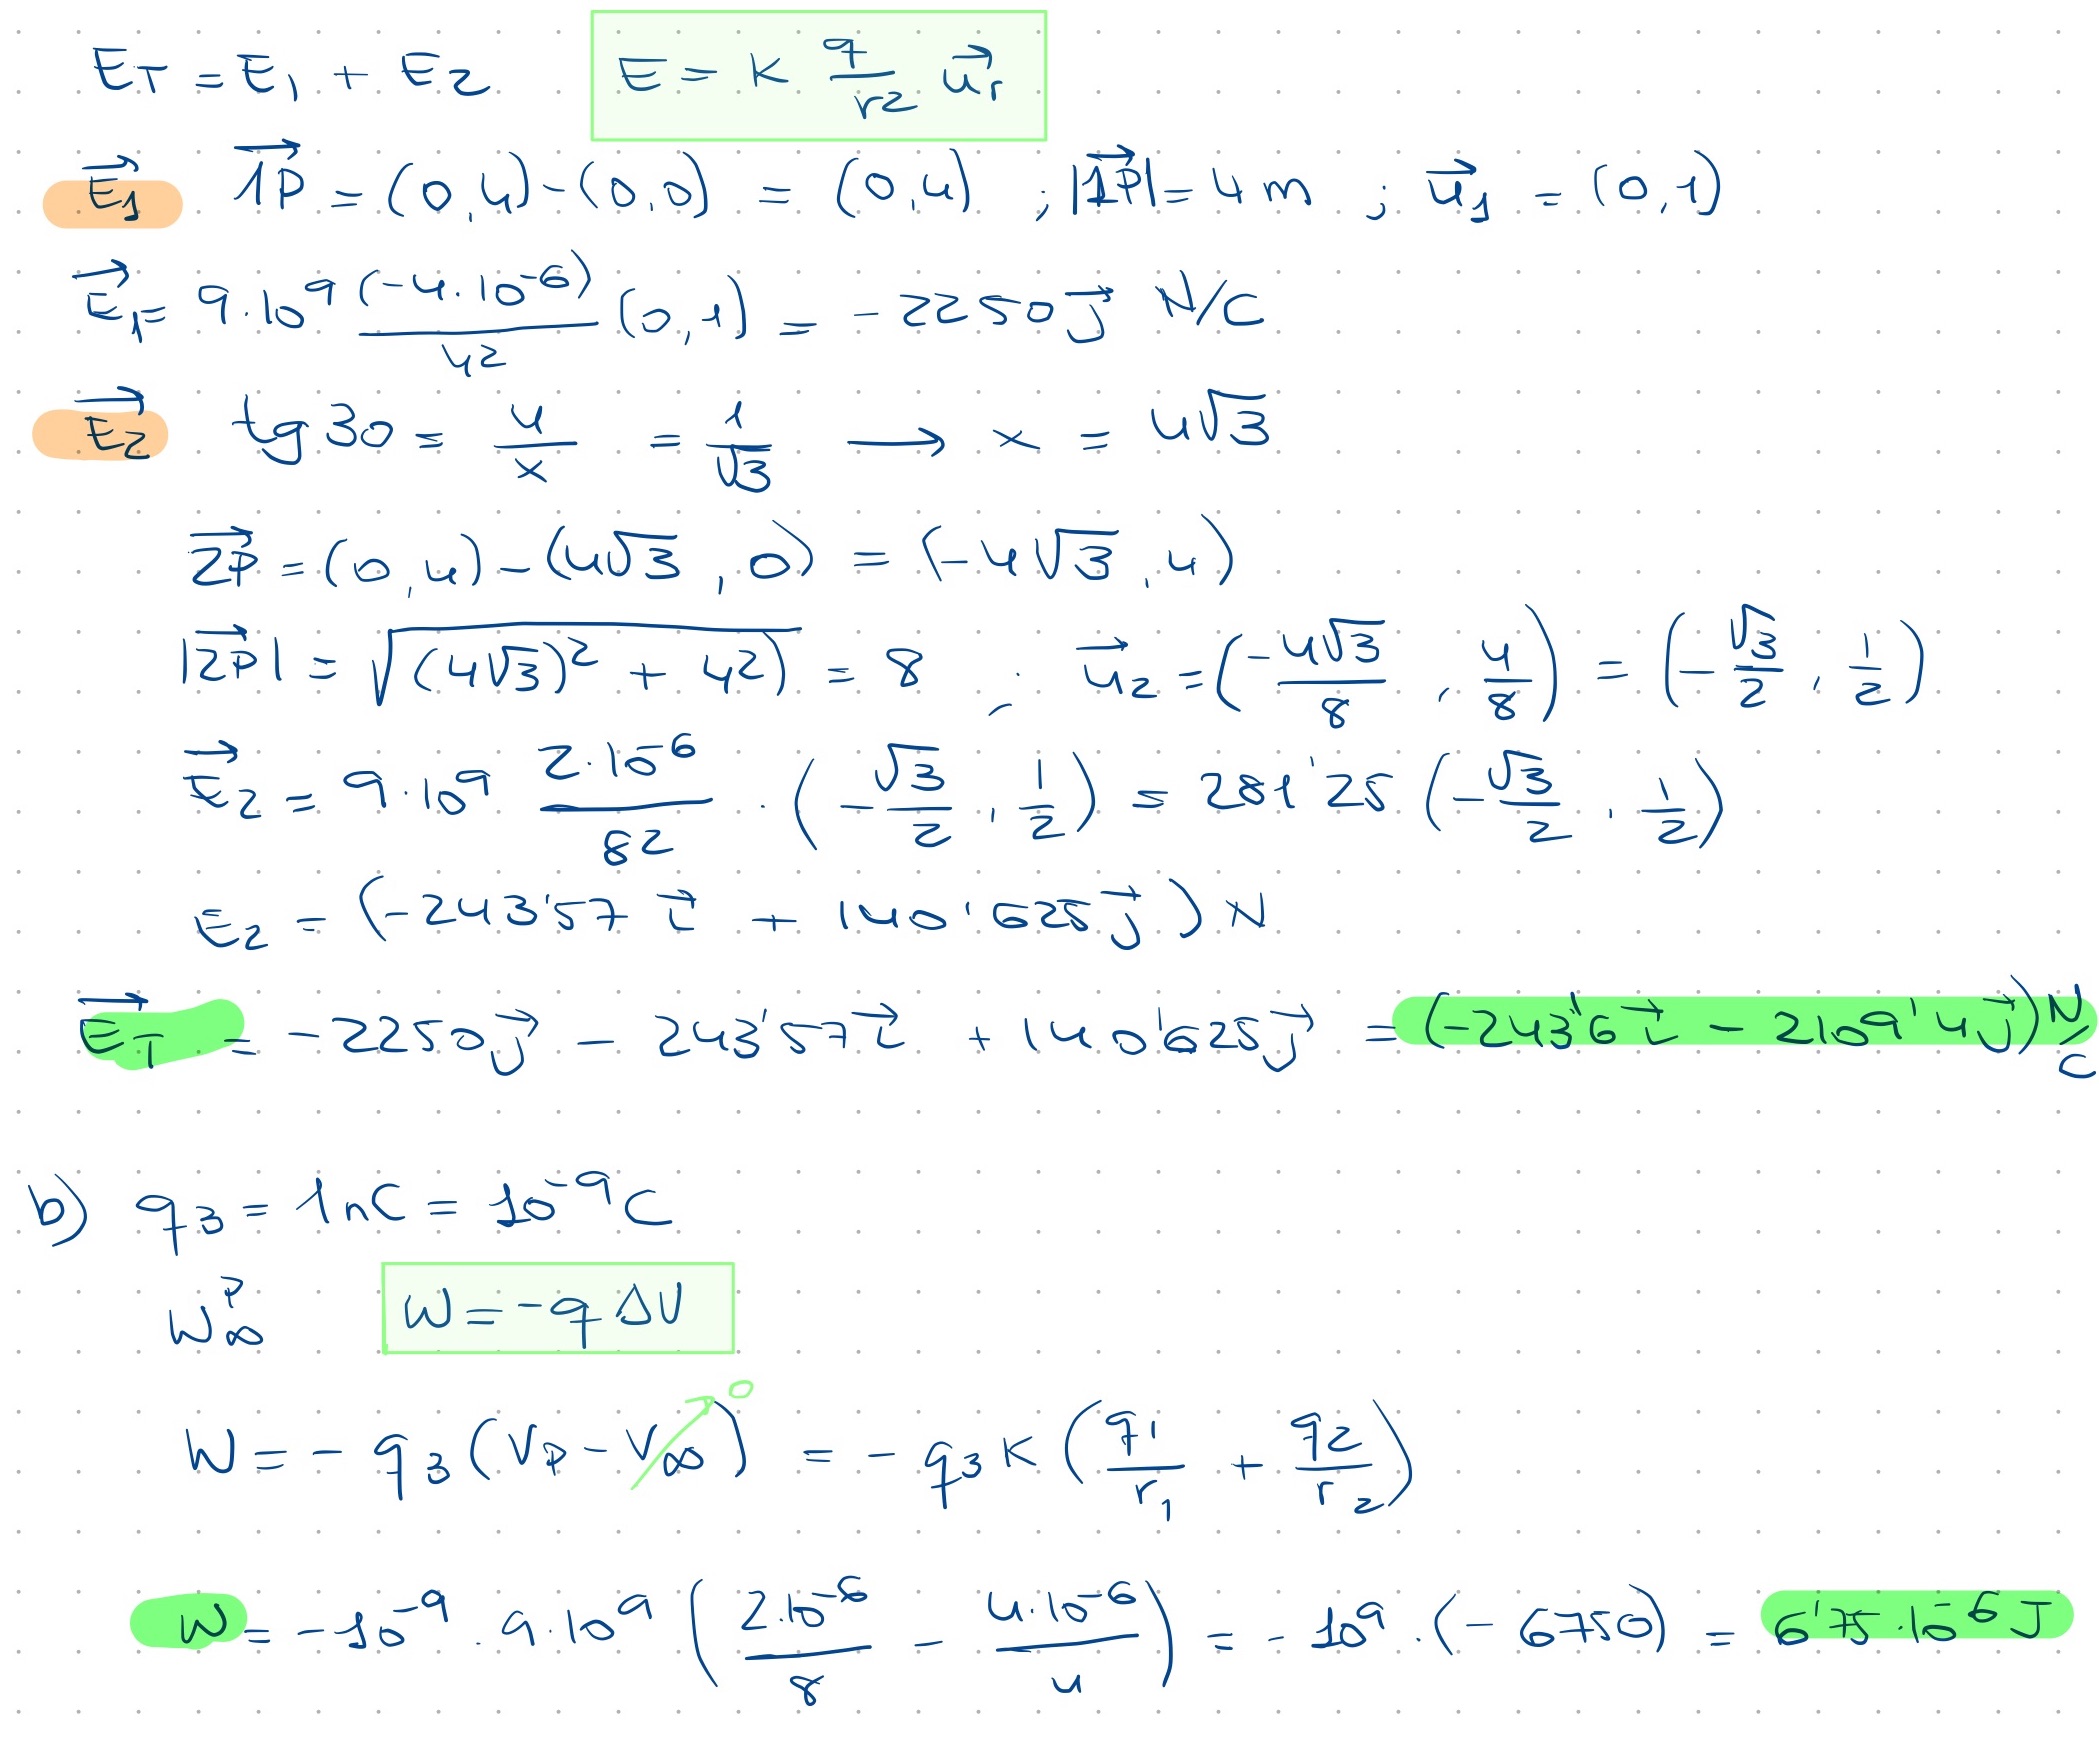 E_T = E_1 + E_2    E = K q/r² u⃗_r
E⃗_1    1P⃗ = (0,4) - (0,0) = (0,4) ; |1P⃗| = 4 m ; u⃗_1 = (0,1)
E⃗_1 = 9·10⁹ (-4·10⁻⁶)/4² (0,1) = -2250 j⃗ N/C
E⃗_2    tg 30 = 4/x = 1/√3 → x = 4√3
2P⃗ = (0,4) - (4√3, 0) = (-4√3, 4)
|2P⃗| = √((4√3)² + 4²) = 8 ; u⃗_2 = (-4√3/8, 4/8) = (-√3/2, 1/2)
E⃗_2 = 9·10⁹ 2·10⁻⁶/8² · (-√3/2, 1/2) = 281'25 (-√3/2, 1/2)
E_2 = (-243'57 i⃗ + 140'625 j⃗) N
E⃗_T = -2250 j⃗ - 243'57 i⃗ + 140'625 j⃗ = (-243'6 i⃗ - 2109'4 j⃗) N/C
b) q_3 = 1 nC = 10⁻⁹ C
W_∞^P    W = -q ΔV
W = - q_3 (V_P - V_∞) = - q_3 K (q_1/r_1 + q_2/r_2)
0
W = -10⁻⁹ · 9·10⁹ (2·10⁻⁶/8 - 4·10⁻⁶/4) = - 10⁹ · (- 6750) = 6'75·10⁻⁶ J